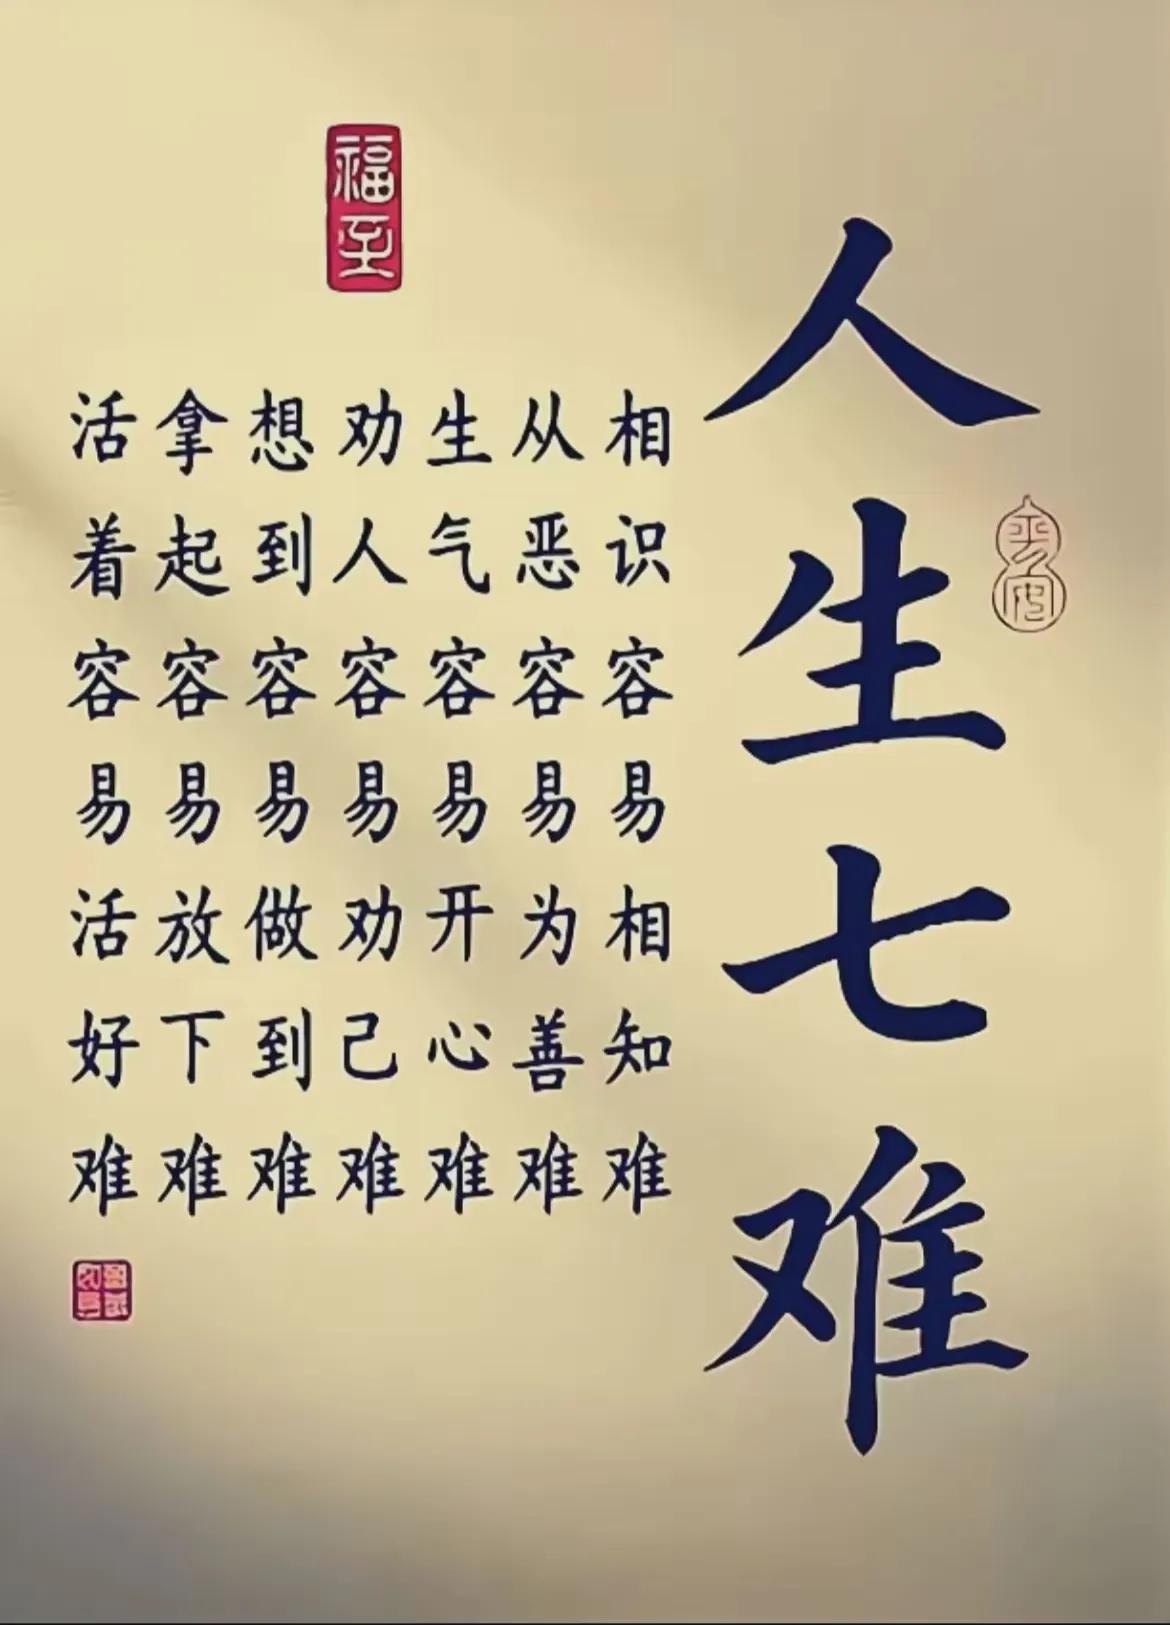 人生七难
平安
相识容易相知难
从恶容易为善难
生气容易开心难
劝人容易劝己难
想到容易做到难
拿起容易放下难
活着容易活好难
福至